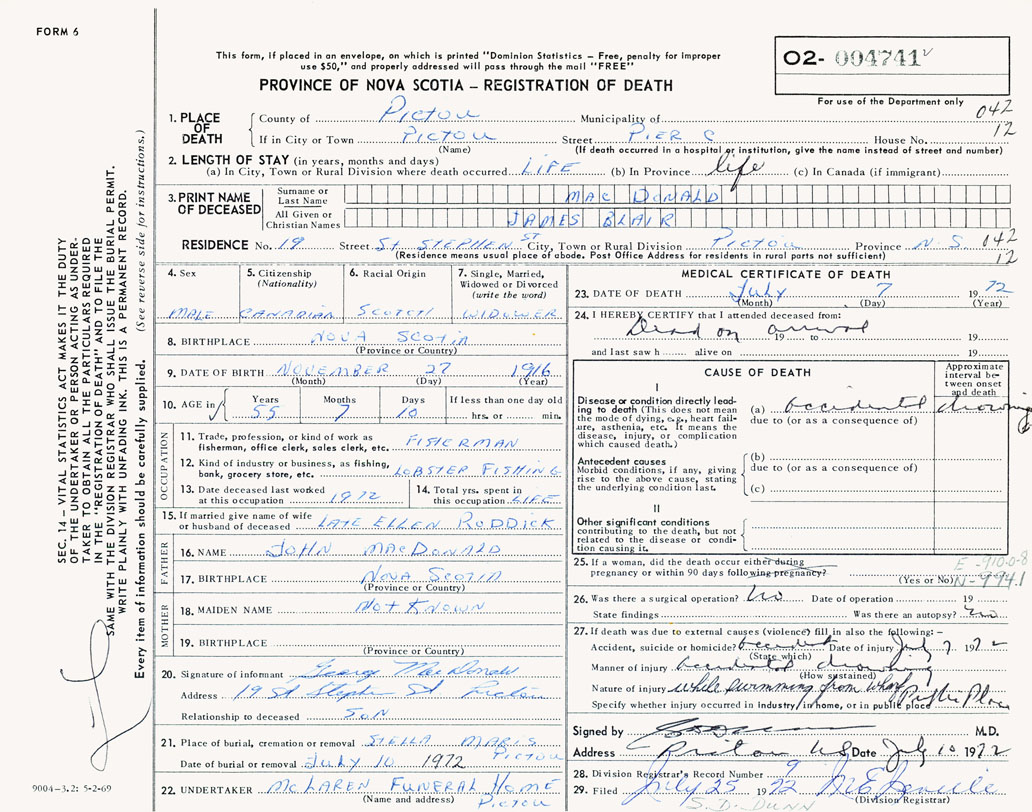 FORM 6
This form, if placed in an envelope, on which is printed "Dominion Statistics – Free, penalty for improper
use $50," and properly addressed will pass through the mail "FREE"
PROVINCE OF NOVA SCOTIA – REGISTRATION OF DEATH
O2- 004741
For use of the Department only
042
12
SEC. 14 – VITAL STATISTICS ACT MAKES IT THE DUTY
OF THE UNDERTAKER OR PERSON ACTING AS UNDER-
TAKER TO OBTAIN ALL THE PARTICULARS REQUIRED
IN THE "REGISTRATION OF DEATH" AND TO FILE THE
SAME WITH THE DIVISION REGISTRAR WHO SHALL ISSUE THE BURIAL PERMIT.
WRITE PLAINLY WITH UNFADING INK. THIS IS A PERMANENT RECORD.
Every item of information should be carefully supplied. (See reverse side for instructions.)
9004-3.2: 5-2-69
1. PLACE OF DEATH
County of PICTOU Municipality of
If in City or Town PICTOU Street PIER C House No.
(Name) (If death occurred in a hospital or institution, give the name instead of street and number)
2. LENGTH OF STAY (in years, months and days)
(a) In City, Town or Rural Division where death occurred LIFE (b) In Province life (c) In Canada (if immigrant)
3. PRINT NAME OF DECEASED
Surname or Last Name MAC DONALD
All Given or Christian Names JAMES BLAIR
RESIDENCE No. 19 Street ST. STEPHEN ST City, Town or Rural Division PICTOU Province N.S. 042
(Residence means usual place of abode. Post Office Address for residents in rural parts not sufficient) 12
4. Sex MALE
5. Citizenship (Nationality) CANADIAN
6. Racial Origin SCOTCH
7. Single, Married, Widowed or Divorced (write the word) WIDOWER
8. BIRTHPLACE NOVA SCOTIA
(Province or Country)
9. DATE OF BIRTH NOVEMBER 27 1916
(Month) (Day) (Year)
10. AGE in Years 55 Months 7 Days 10 If less than one day old hrs. or min.
OCCUPATION
11. Trade, profession, or kind of work as
fisherman, office clerk, sales clerk, etc. FISHERMAN
12. Kind of industry or business, as fishing,
bank, grocery store, etc. LOBSTER FISHING
13. Date deceased last worked
at this occupation 1972
14. Total yrs. spent in
this occupation LIFE
15. If married give name of wife
or husband of deceased LATE ELLEN RODDICK
FATHER
16. NAME JOHN MACDONALD
17. BIRTHPLACE NOVA SCOTIA
(Province or Country)
MOTHER
18. MAIDEN NAME NOT KNOWN
19. BIRTHPLACE
(Province or Country)
20. Signature of informant George MacDonald
Address 19 St Stephen St Pictou
Relationship to deceased SON
21. Place of burial, cremation or removal STELLA MARIS PICTOU
Date of burial or removal JULY 10 1972
22. UNDERTAKER McLAREN FUNERAL HOME
(Name and address) PICTOU
MEDICAL CERTIFICATE OF DEATH
23. DATE OF DEATH July 7 1972
(Month) (Day) (Year)
24. I HEREBY CERTIFY that I attended deceased from:
Dead on arrival 19 to 19
and last saw h alive on 19
CAUSE OF DEATH
Approximate interval between onset and death
I
Disease or condition directly lead-
ing to death (This does not mean
the mode of dying, e.g., heart fail-
ure, asthenia, etc. It means the
disease, injury, or complication
which caused death.)
(a) accidental drowning
due to (or as a consequence of)
Antecedent causes
Morbid conditions, if any, giving
rise to the above cause, stating
the underlying condition last.
(b)
due to (or as a consequence of)
(c)
II
Other significant conditions
contributing to the death, but not
related to the disease or condi-
tion causing it.
25. If a woman, did the death occur either during
pregnancy or within 90 days following pregnancy?
(Yes or No)
E-910-0-8
N-994.1
26. Was there a surgical operation? no Date of operation 19
State findings Was there an autopsy? no
27. If death was due to external causes (violence) fill in also the following: –
Accident, suicide or homicide? accident Date of injury July 7 1972
(State which)
Manner of injury accidental drowning
(How sustained)
Nature of injury while swimming from wharf
Specify whether injury occurred in industry, in home, or in public place Public Place
Signed by M.D.
Address Pictou N.S. Date July 10 1972
28. Division Registrar's Record Number 9
29. Filed July 25 1972
(Division Registrar)
S. D. DUNN